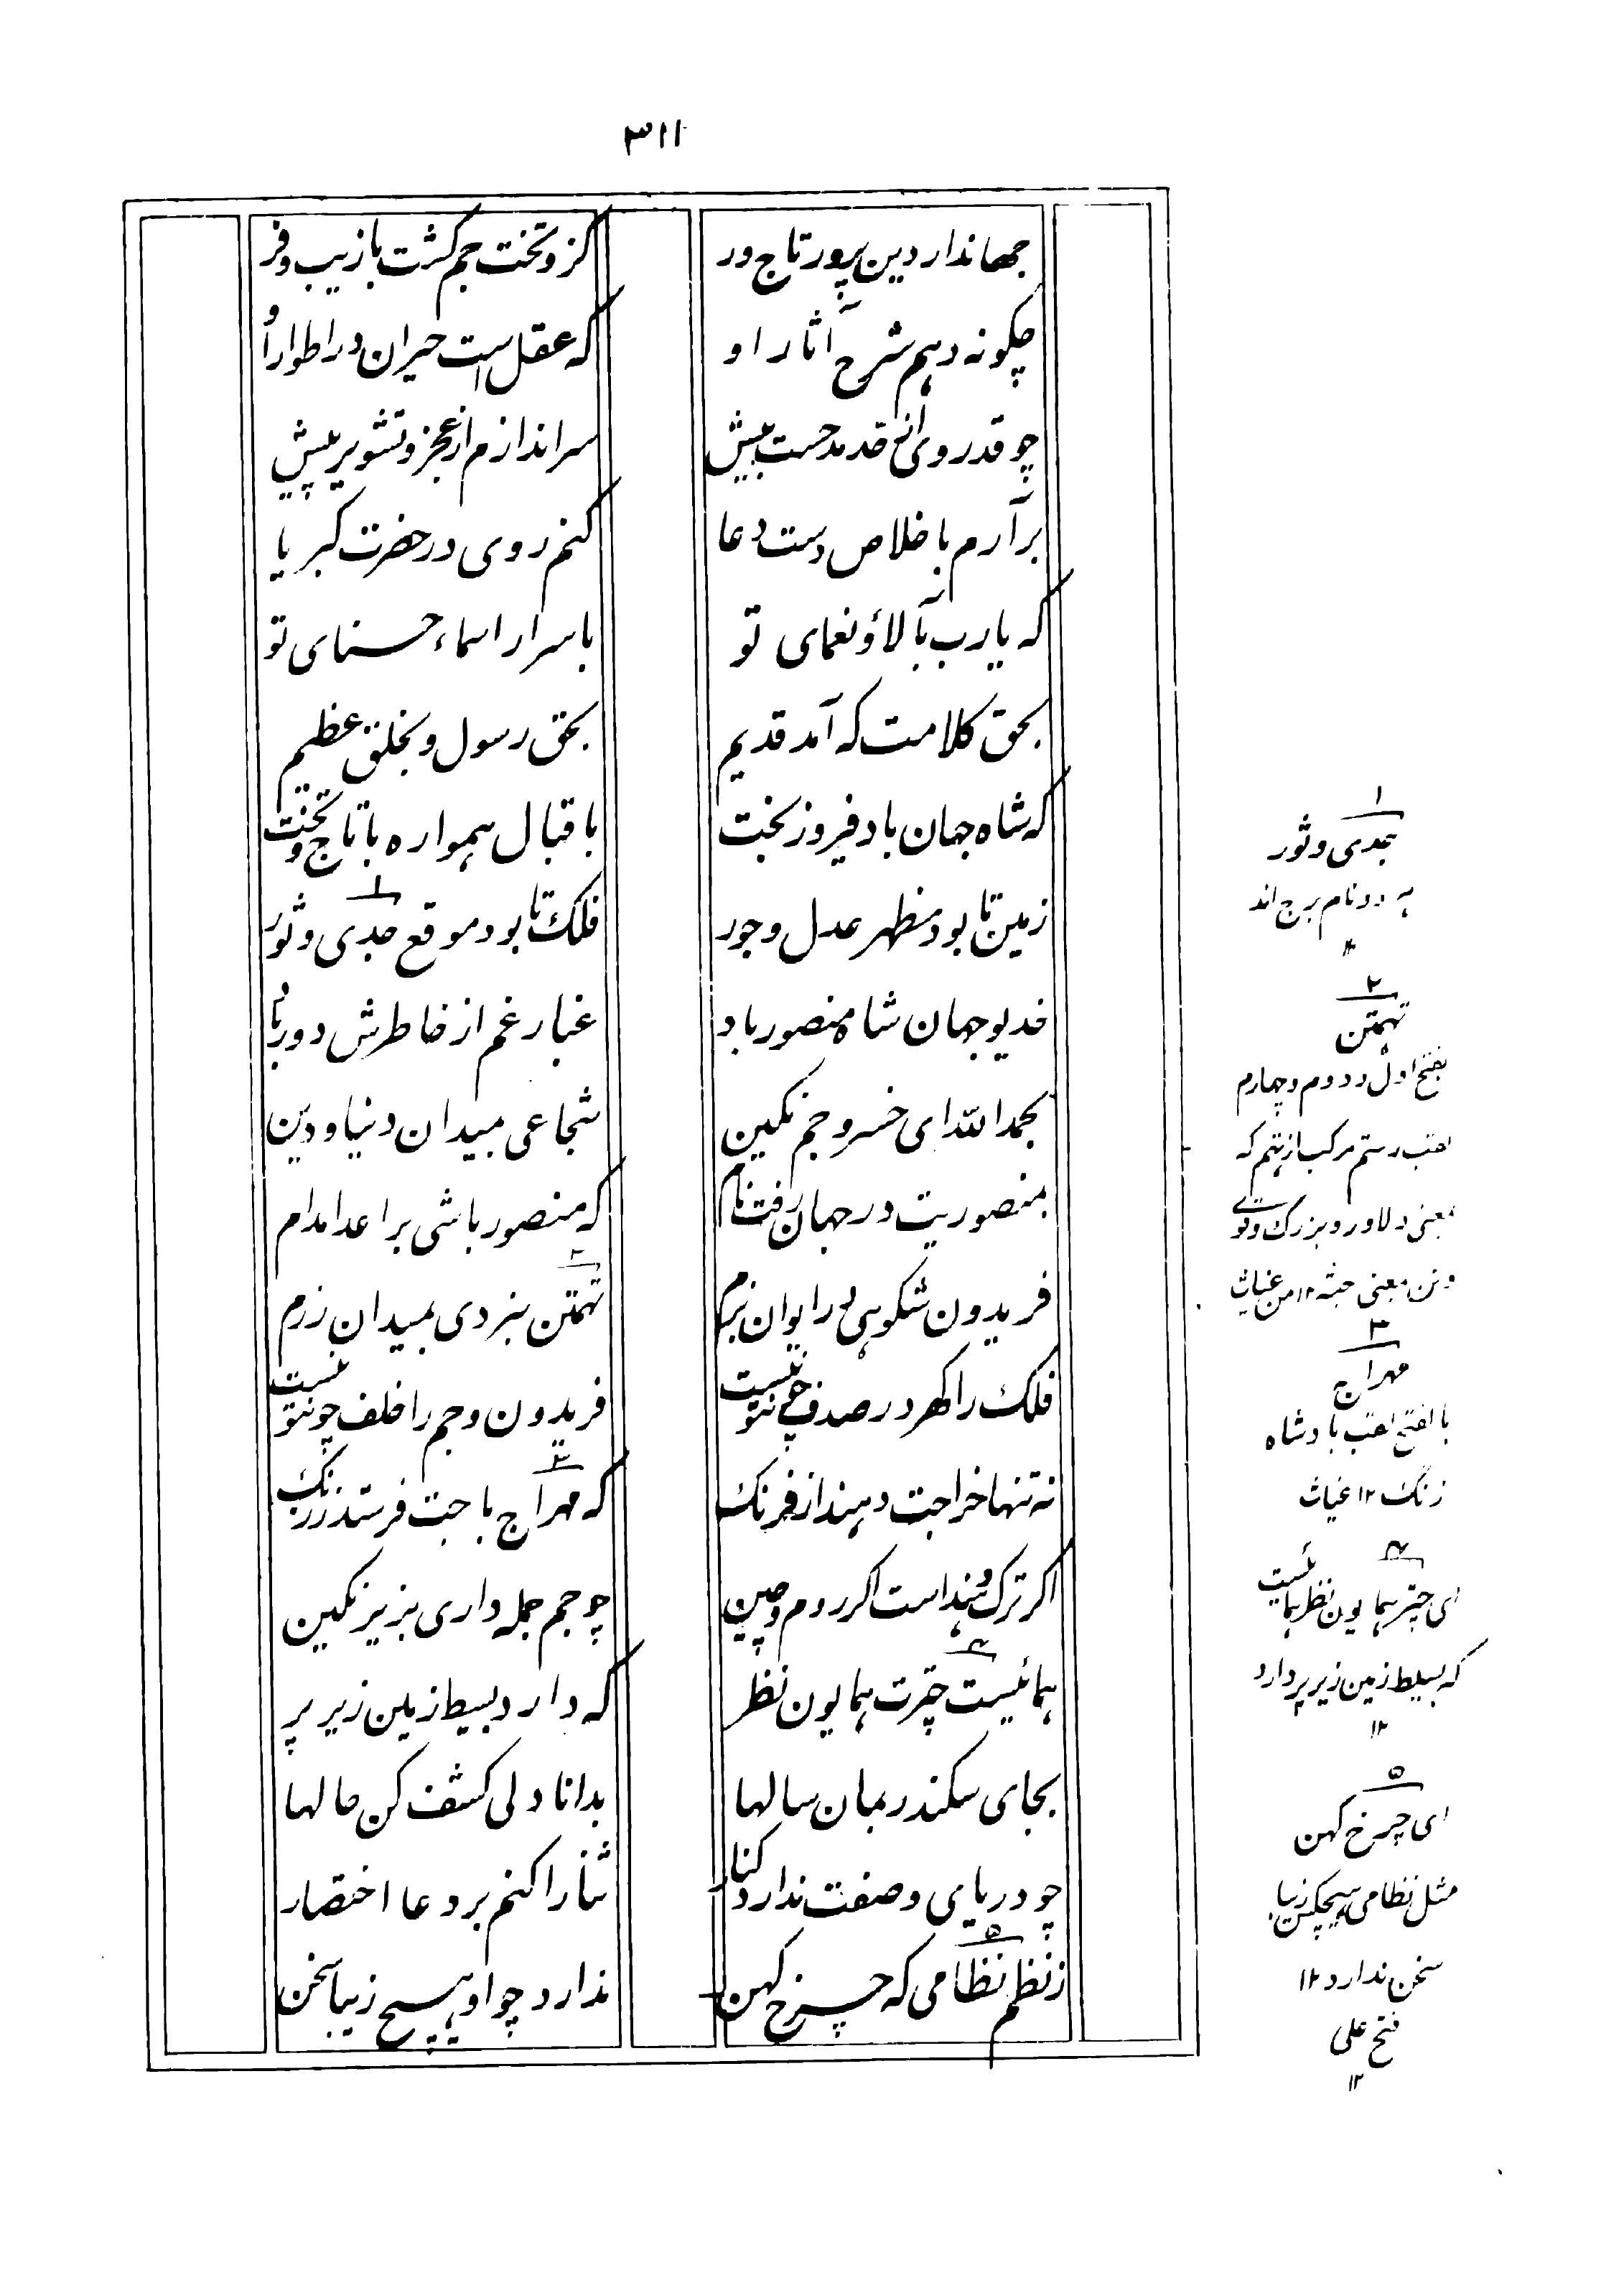 ۳۱۱
جهاندار دین پرور تاج ور
کزو تخت جم گشت با زیب و فر
چگونه دهم شرح آثار او
که عقل است حیران در اطوار او
چو قدر وی از قدر مدحست بیش
سر اندازم از عجز و تشویر پیش
برآرم باخلاص دست دعا
کنم روی در حضرت کبریا
که یارب بآلاؤ نعمای تو
باسرار اسماء حسنای تو
بحق کلامت که آمد قدیم
بحق رسول و بخلق عظیم
که شاه جهان باد فیروز بخت
باقبال همواره با تاج و تخت
زمین تا بود مظهر عدل و جور
فلک تا بود موقع جدی و ثور
خدیو جهان شاه منصور باد
غبار غم از خاطرش دور باد
بحمد الله ای خسرو جم نگین
شجاعی بمیدان دنیا و دین
بمنصوریت در جهان رفت نام
که منصور باشی بر اعدا مدام
فریدون شکوهی در ایوان بزم
تهمتن نبردی بمیدان رزم
فلک را گهر در صدف چون تو نیست
فریدون و جم را خلف چون تو نیست
نه تنها خراجت دهند از فرنگ
که مهراج باجت فرستد ز زنگ
اگر ترک و هند است اگر روم و چین
چو جم جمله داری بزیر نگین
همائیست چترت همایون نظر
که دارد بسیط زمین زیر پر
بجای سکندر بمان سالها
بدانا دلی کشف کن حالها
چو دریای وصفت ندارد کنار
ثنا را کنم بر دعا اختصار
ز نظم نظامی که چرخ کهن
ندارد چو او هیچ زیبا سخن
۱
جدی و ثور
هر دو نام برج اند
۱۲
۲
تهمتن
بفتح اول و دوم و چهارم
لقب رستم مرکب از تهم که
بمعنی دلاور و بزرگ و قوی
و تن بمعنی جثه ۱۲ من غیاث
۳
مهراج
بالفتح لقب بادشاه
زنگ ۱۲ غیاث
۴
ای چتر همایون نظر همائیست
که بسیط زمین زیر پر دارد
۱۲
۵
ای چرخ کهن
مثل نظامی هیچکس زیبا
سخن ندارد ۱۲
فتح علی
۱۲